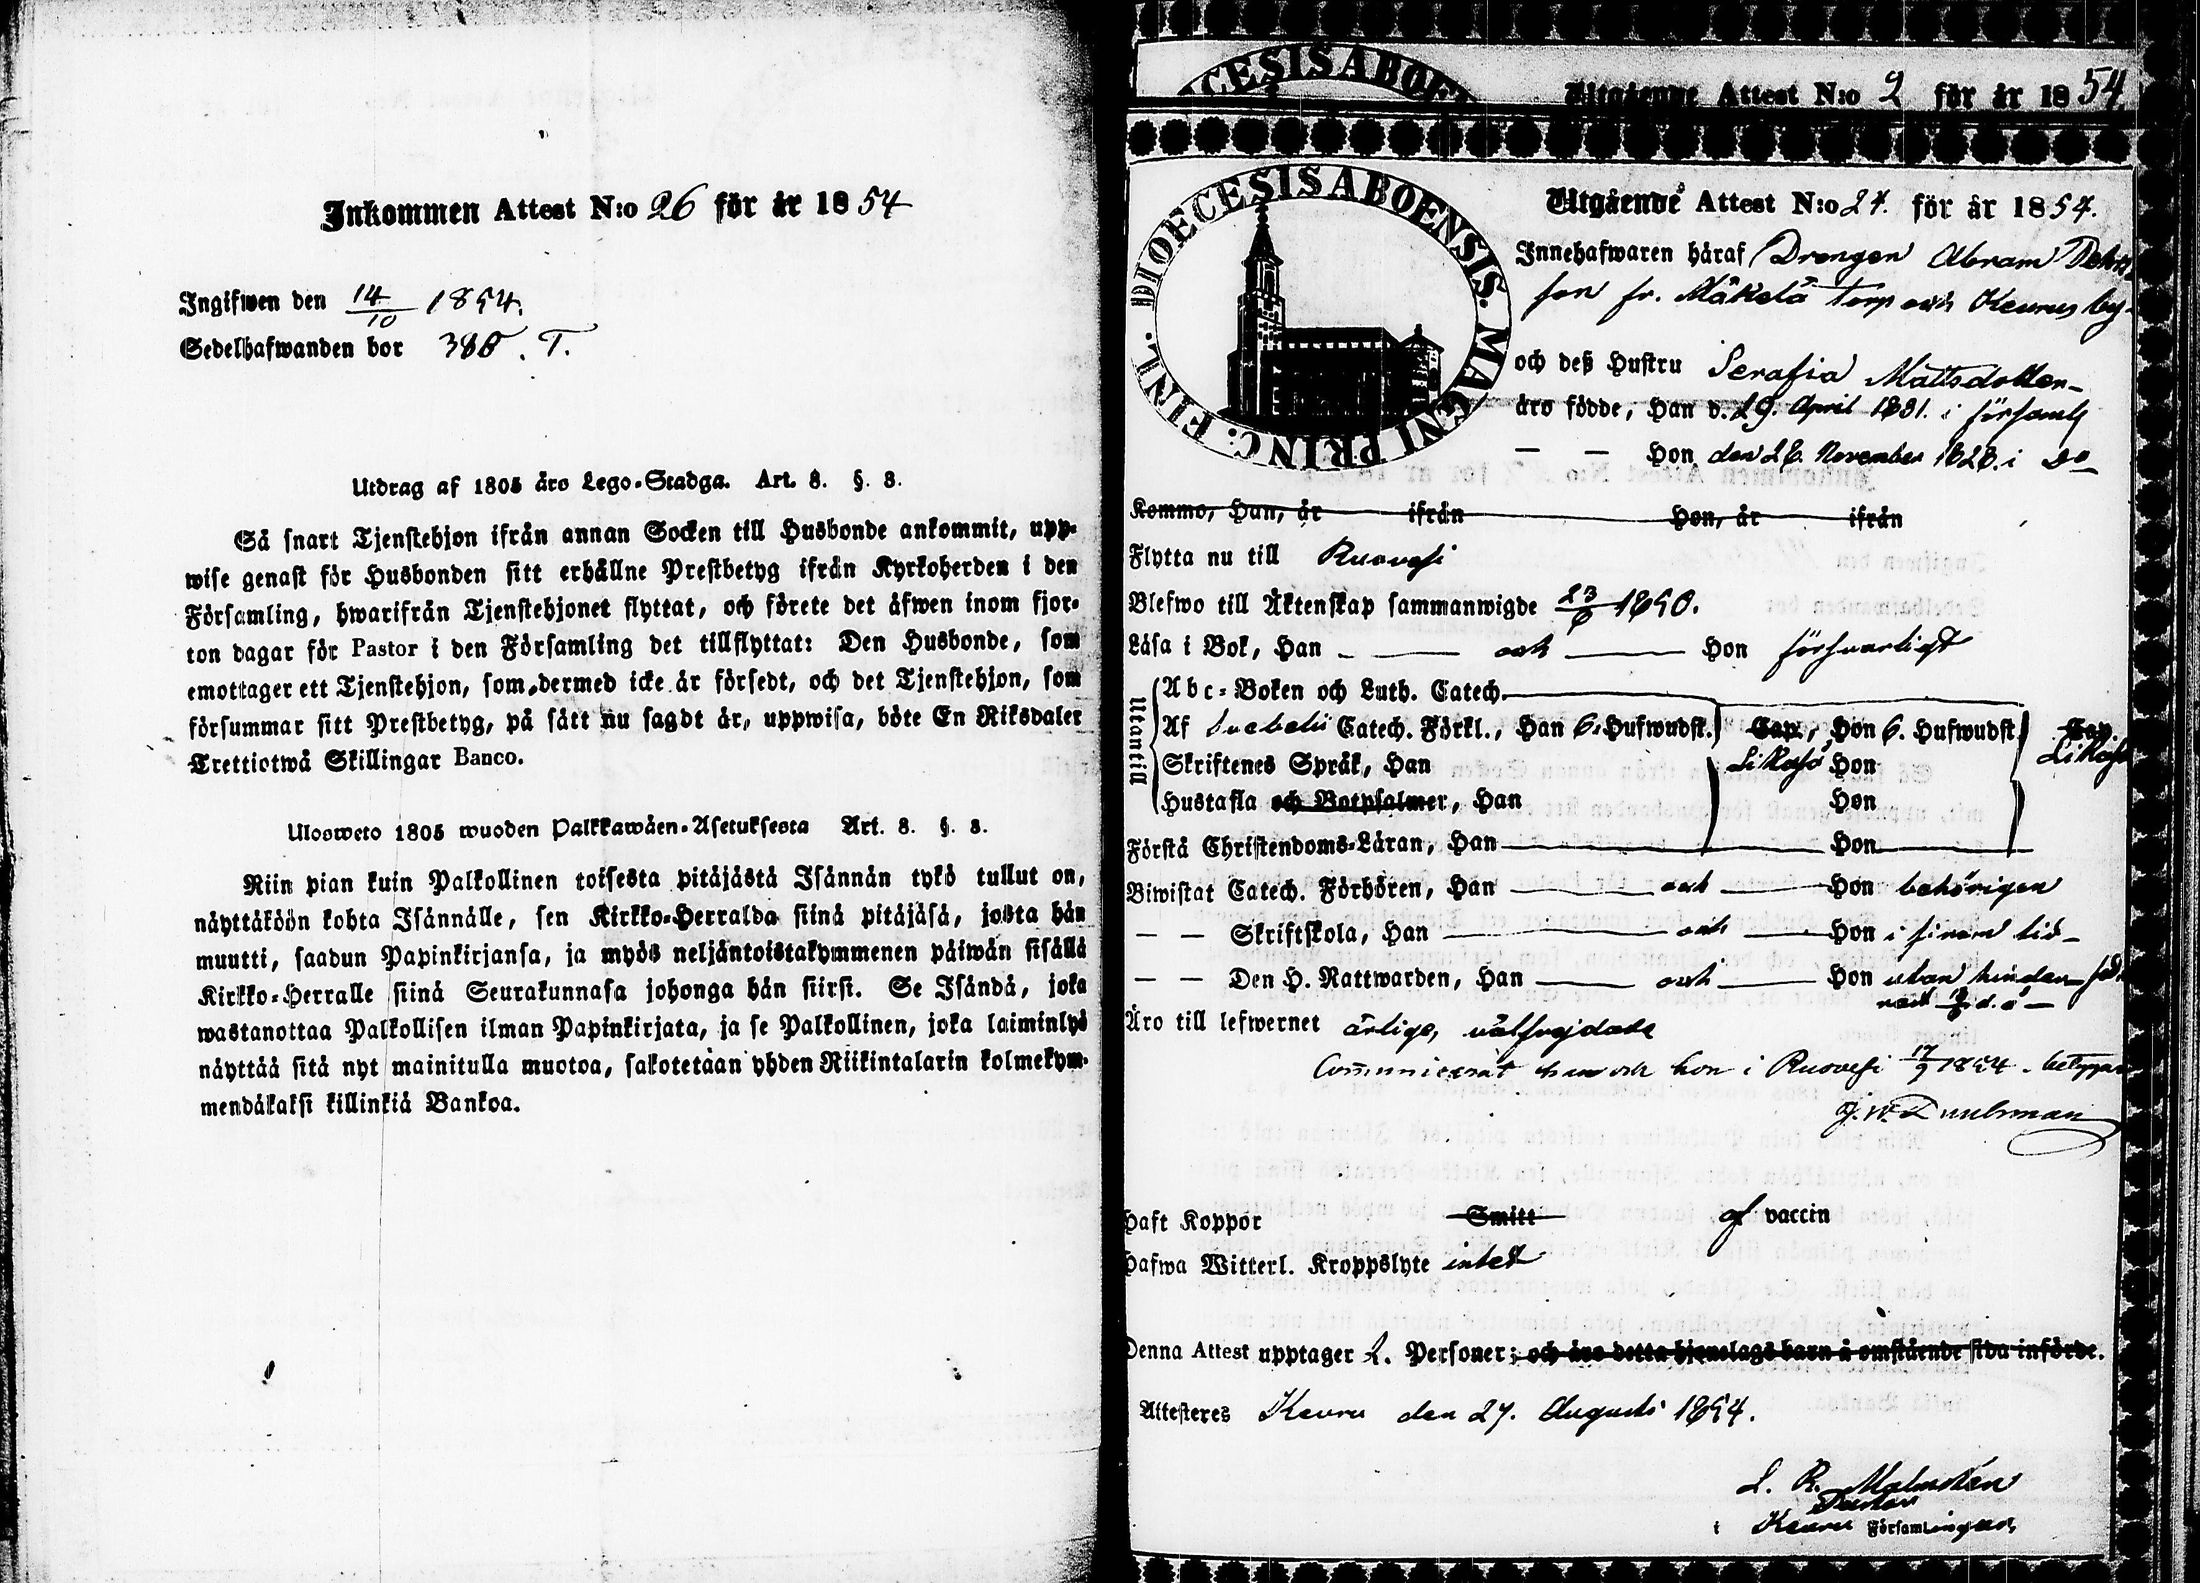 Inkommen Attest N:o 26 för år 1854
Ingifwen den 14/10 1854.
Sedelhafwanden bor 386. T.
Utdrag af 1805 års Lego-Stadga. Art. 8. §. 8.
Så snart Tjenstehjon ifrån annan Socken till Husbonde ankommit, upp-
wise genast för Husbonden sitt erhållne Prestbetyg ifrån Kyrkoherden i den
Församling, hwarifrån Tjenstehjonet flyttat, och förete det äfwen inom fjor-
ton dagar för Pastor i den Församling det tillflyttat: Den Husbonde, som
emottager ett Tjenstehjon, som dermed icke är försedt, och det Tjenstehjon, som
försummar sitt Prestbetyg, på sätt nu sagdt är, uppwisa, böte En Riksdaler
Trettiotwå Skillingar Banco.
Ulosweto 1805 wuoden Palkkawäen-Asetuksesta Art. 8. §. 8.
Niin pian kuin Palkollinen toisesta pitäjästä Isännän tykö tullut on,
näyttäköön kohta Isännälle, sen Kirkko-Herralda siinä pitäjäsä, josta hän
muutti, saadun Papinkirjansa, ja myös neljäntoistakymmenen päiwän sisällä
Kirkko-Herralle siinä Seurakunnasa johonga hän siirsi. Se Isändä, joka
wastanottaa Palkollisen ilman Papinkirjata, ja se Palkollinen, joka laiminlyö
näyttää sitä nyt mainitulla muotoa, sakotetaan yhden Riikintalarin kolmekym-
mendäkaksi killinkiä Bankoa.
CESIS ABOE
Utgående Attest N:o 2 för år 1854
DIOECESIS ABOENSIS. MAGNI PRINC: FINL.
Utgående Attest N:o 27. för år 1854.
Innehafwaren häraf Drengen Abram
son fr. Mäkelä torp och Keurus by
och deß Hustru Serafia Mattsdotter
äro födde, Han d. 29. April 1831. i församl
— — Hon den 26. November 1828. i Do
Kommo, Han, år ifrån Hon, år ifrån
Flytta nu till Ruovesi
Blefwo till Äktenskap sammanwigde 23/6 1850.
Läsa i Bok, Han — och — Hon förswarligt
Utantill
Abc-Boken och Luth. Catech.
Af Svebelii Catech. Förkl., Han 6. Hufwudst. Cap., Hon 6. Hufwudst. Cap.
Skriftenes Språk, Han Likaså Hon Likaså
Hustafla och Botpsalmer, Han Hon
Förstå Christendoms-Läran, Han Hon
Biwistat Catech. Förhören, Han — och — Hon behörigen
— — Skriftskola, Han — och — Hon i sinom tid
— — Den H. Nattwarden, Han — och — Hon utan hinder
Äro till lefwernet ärlige, välfrejdade
Communicerat han och hon i Ruovesi 17/9 1854. betygar
Haft Koppor Smitt af vaccin
Hafwa Witterl. Kroppslyte intet
Denna Attest upptager 2. Personer; och äro detta hjonelags barn å omstående sida införde.
Attesteres Keuru den 27. Augusti 1854.
L. R. Malmstén
Pastor
i Keuru Församlingar.